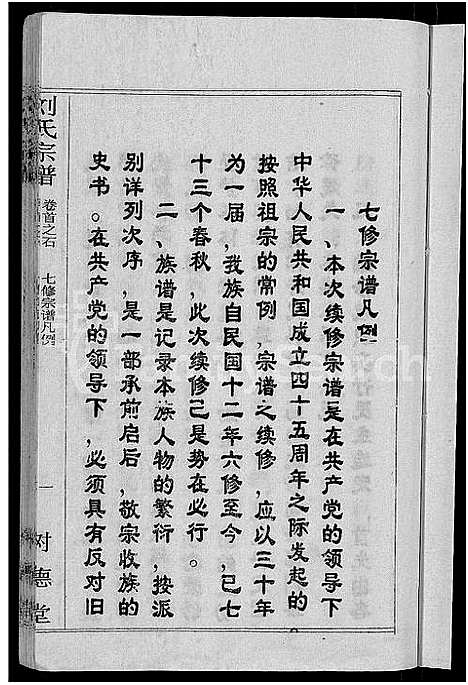 七修宗谱凡例
一、本次续修宗谱是在共产党的领导下
中华人民共和国成立四十五周年之际发起的
按照祖宗的常例，宗谱之续修，应以三十年
为一届，我族自民国十二年六修至今，已七
十三个春秋，此次续修已是势在必行。
二、族谱是记录本族人物的繁衍，按派
别详列次序，是一部承前启后，敬宗收族的
史书。在共产党的领导下，必须具有反对旧
刘氏宗谱
卷首之右 七修宗谱凡例
一
树德堂